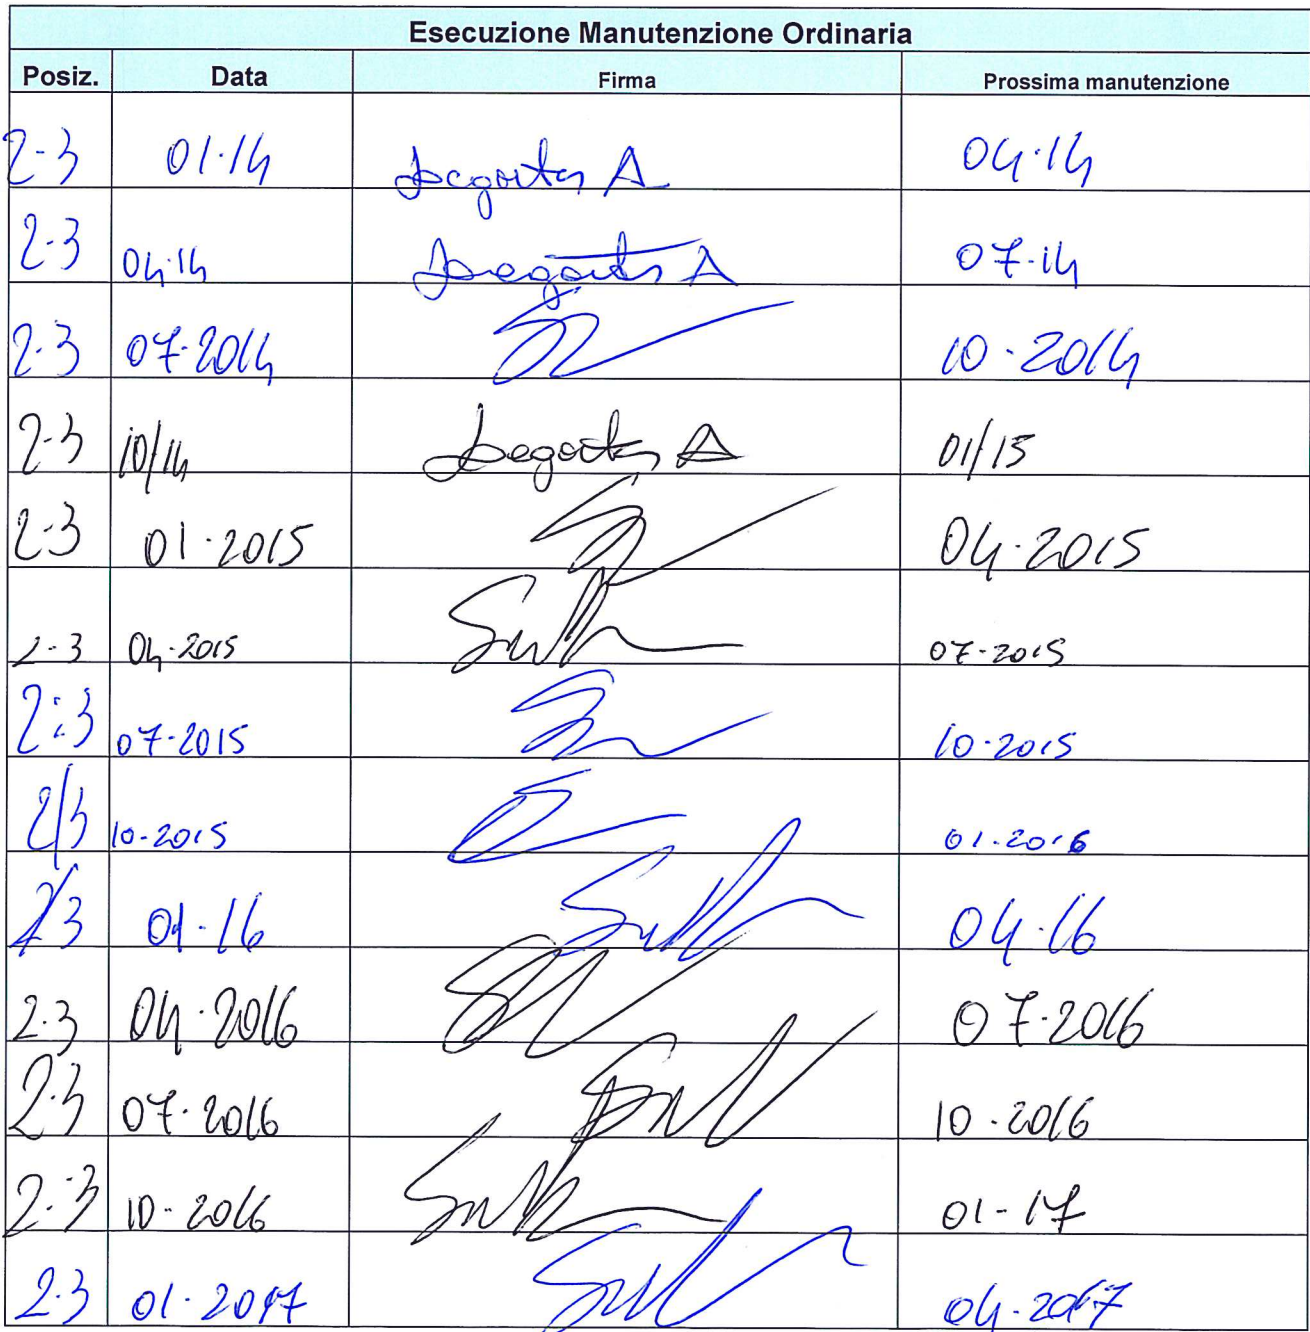 Esecuzione Manutenzione Ordinaria
Posiz. Data Firma Prossima manutenzione
2-3 01.14 A 04.14
2-3 04.14 A 07.14
2.3 07.2014 10.2014
2-3 10/14 A 01/15
2-3 01.2015 04.2015
2-3 04-2015 07-2015
2:3 07-2015 10-2015
2/3 10-2015 01-2016
2/3 01-16 04.16
2.3 04.2016 07.2016
2.3 07.2016 10.2016
2.3 10-2016 01-17
2.3 01.2017 04-2017